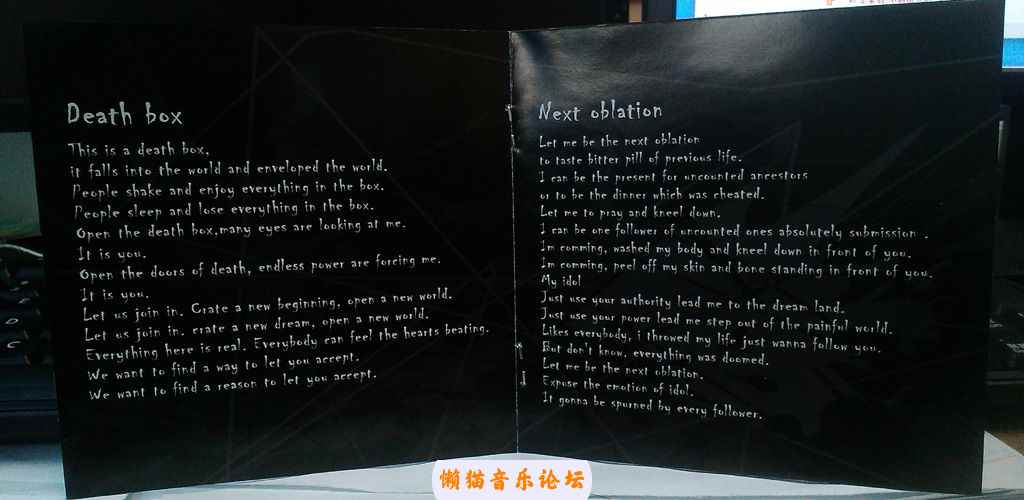 Death box
This is a death box,
it falls into the world and enveloped the world.
People shake and enjoy everything in the box.
People sleep and lose everything in the box.
Open the death box,many eyes are looking at me.
It is you.
Open the doors of death, endless power are forcing me.
It is you.
Let us join in. Crate a new beginning, open a new world.
Let us join in. crate a new dream, open a new world.
Everything here is real. Everybody can feel the hearts beating.
We want to find a way to let you accept.
We want to find a reason to let you accept.
Next oblation
Let me be the next oblation
to taste bitter pill of previous life.
I can be the present for uncounted ancestors
or to be the dinner which was cheated.
Let me to pray and kneel down.
I can be one follower of uncounted ones absolutely submission .
Im comming, washed my body and kneel down in front of you.
Im comming, peel off my skin and bone standing in front of you.
My idol
Just use your authority lead me to the dream land.
Just use your power lead me step out of the painful world.
Likes everybody, i throwed my life just wanna follow you.
But don't know, everything was doomed.
Let me be the next oblation.
Expose the emotion of idol.
It gonna be spurned by every follower.
懒猫音乐论坛